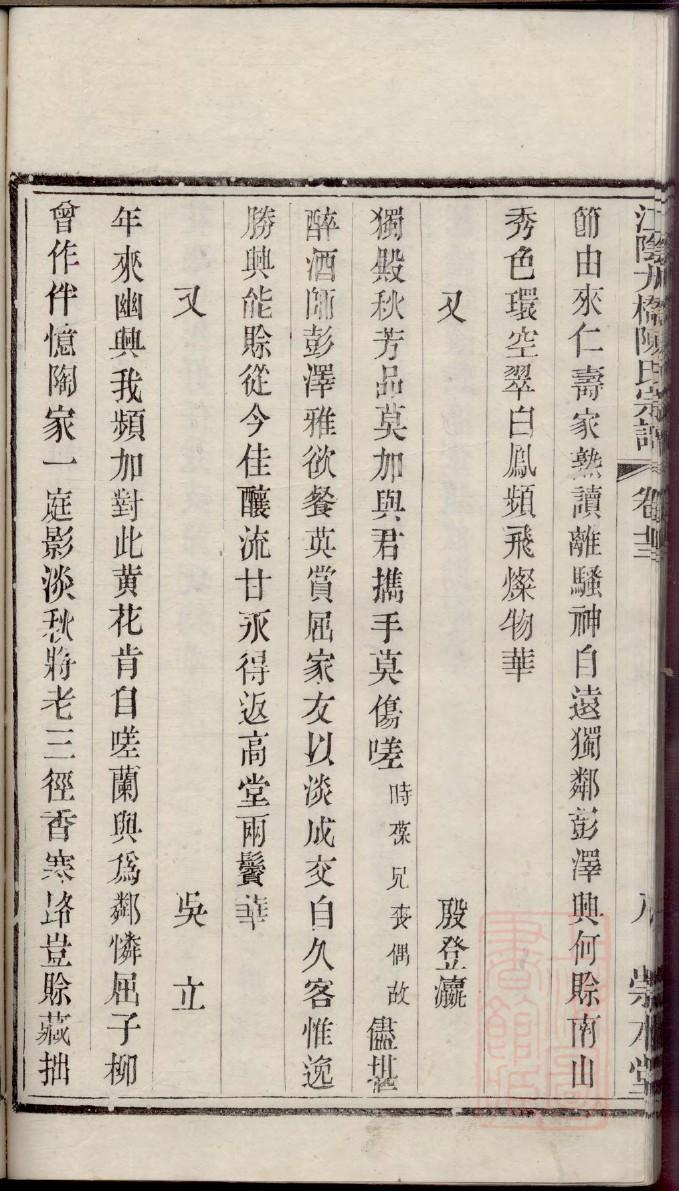 江陰九橋陳氏宗譜 卷廿三 八 崇本堂
節由來仁壽家熟讀離騷神自遠獨鄰彭澤興何賒南山
秀色環空翠白鳳頻飛燦物華
又 殷登瀛
獨殿秋芳品莫加與君攜手莫傷嗟時葆兄喪偶故儘堪
醉酒師彭澤雅欲餐英賞屈家友以淡成交自久客惟逸
勝興能賒從今佳釀流甘永得返高堂兩鬢華
又 吳立
年來幽興我頻加對此黃花肯自嗟蘭與爲鄰憐屈子柳
曾作伴憶陶家一庭影淡秋將老三徑香寒路豈賒藏拙